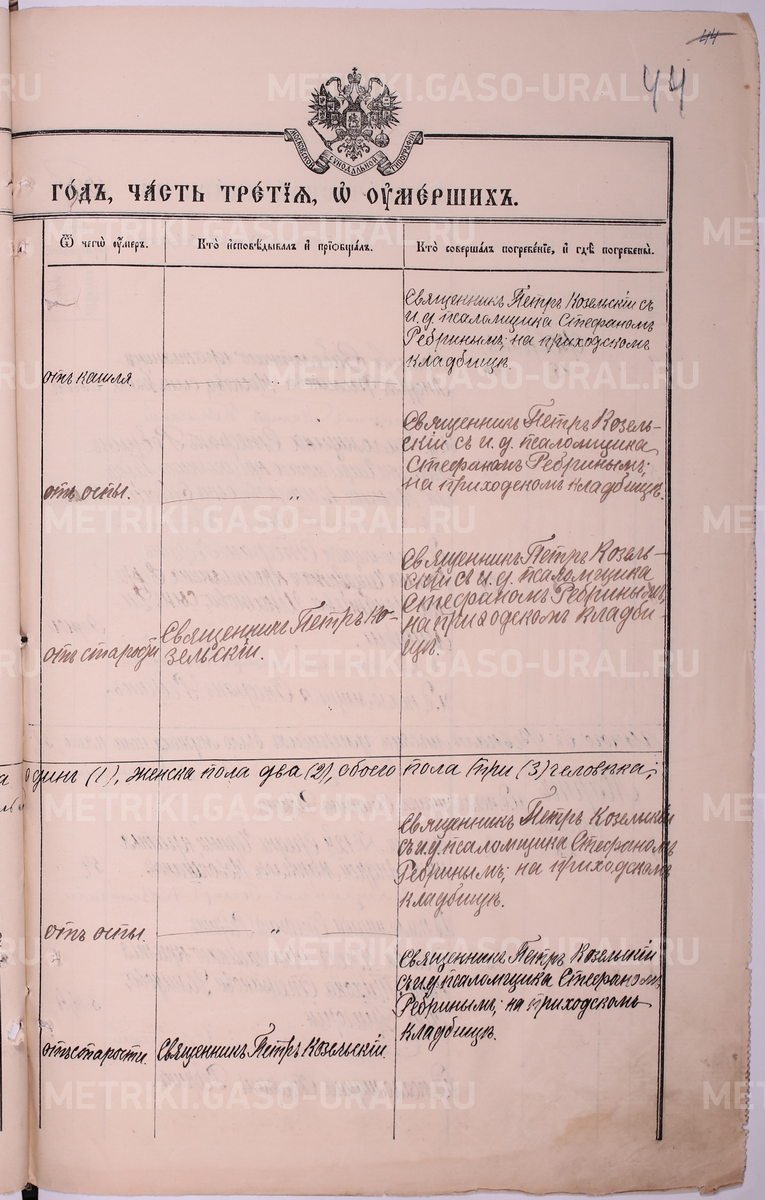 44
44
МОСКОВСКОЙ СѴНОДАЛЬНОЙ ТИПОГРАФІИ
ГО́ДЪ, ЧА́СТЬ ТРЕ́ТІѦ, Ѡ ОУМЕ́РШИХЪ.
Ѿ чегѡ оу́меръ.
Кто̀ и҆сповѣ́дывалъ и҆ прїѡбща́лъ.
Кто̀ соверша́лъ погребе́нїе, и҆ гдѣ̀ погребены̀.
отъ кашля.
— „ —
Священникъ Петръ Козельскій съ
и. д. псаломщика Стефаномъ
Ребринымъ; на приходскомъ
кладбищѣ.
отъ оспы.
— „ —
Священникъ Петръ Козель-
скій съ и. д. псаломщика
Стефаномъ Ребринымъ;
на приходскомъ кладбищѣ.
отъ старости
Священникъ Петръ Ко-
зельскій.
Священникъ Петръ Козель-
скій съ и. д. псаломщика
Стефаномъ Ребринымъ,
на приходскомъ кладби-
щѣ.
одинъ (1), женска пола два (2), обоего пола три (3) человѣка;
отъ оспы.
— „ —
Священникъ Петръ Козельскій
съ и.д. псаломщика Стефаномъ
Ребринымъ; на приходскомъ
кладбищѣ.
отъ старости.
Священникъ Петръ Козельскій.
Священникъ Петръ Козельскій
съ и.д. псаломщика Стефаномъ
Ребринымъ; на приходскомъ
кладбищѣ.
METRIKI.GASO-URAL.RU